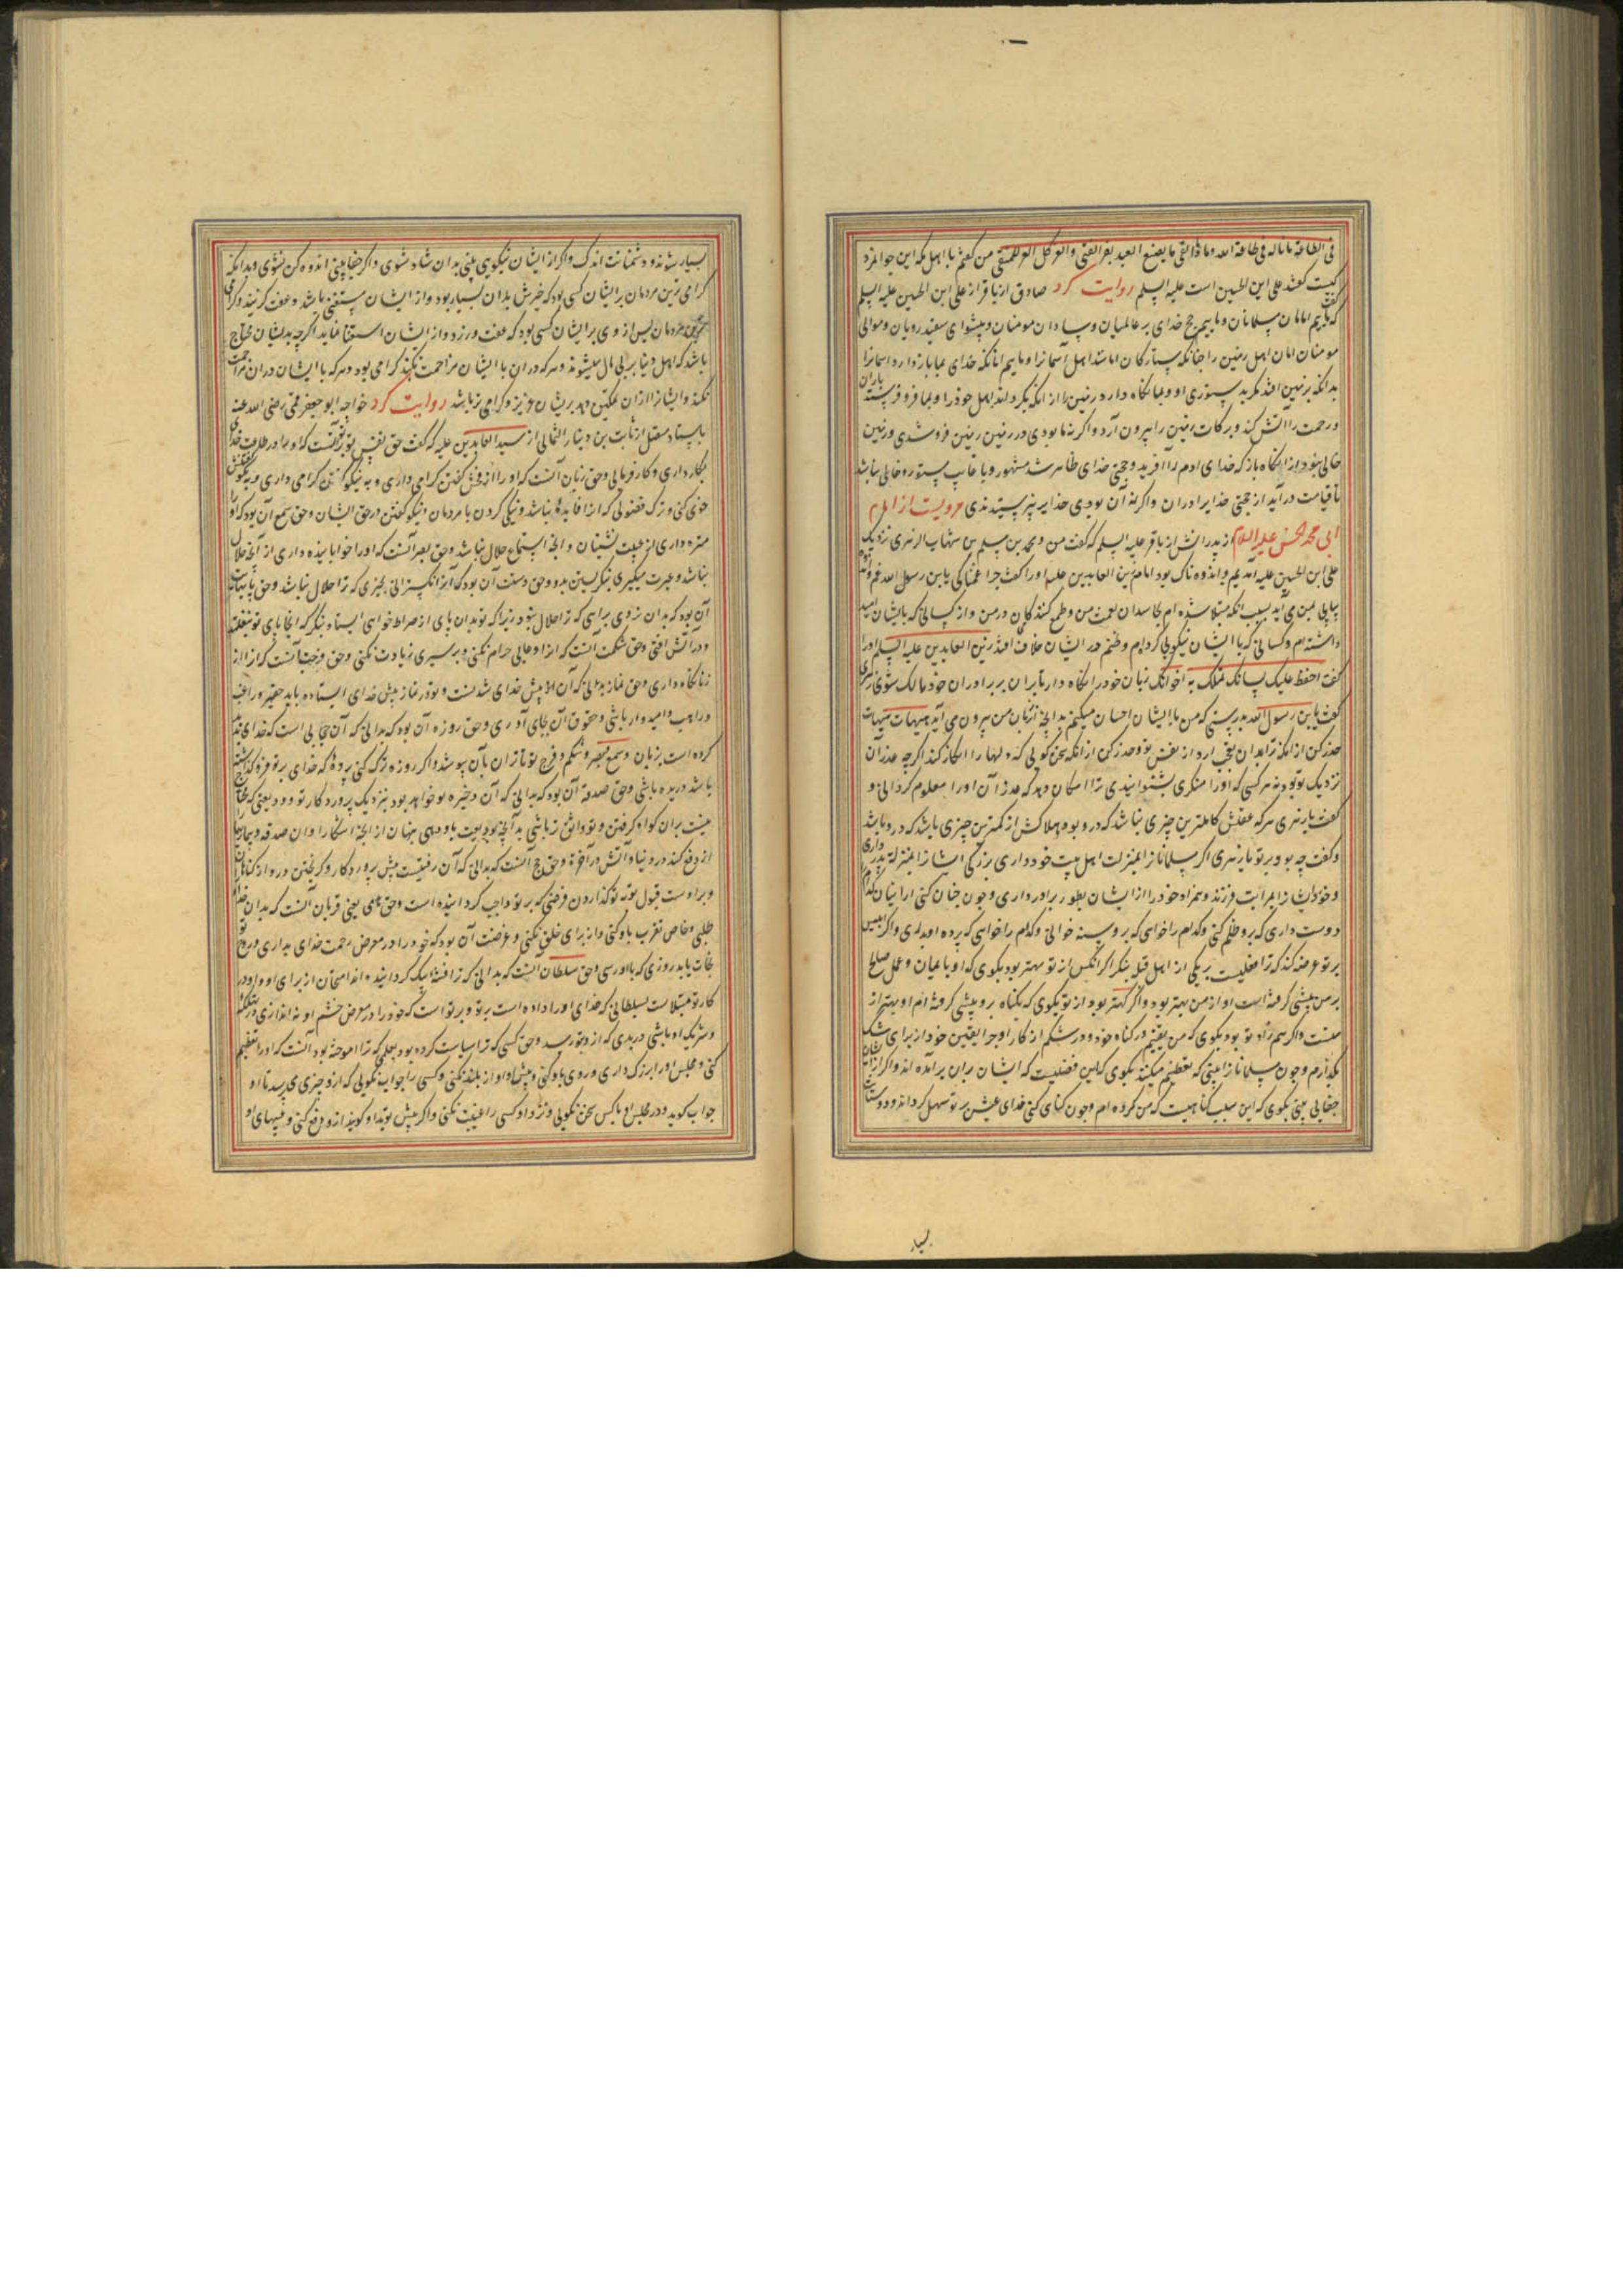 فی الطاعة ما ناله فی طاعة الله و ما ذا لقی ما یصنع العبد بعز الغنی والعز کل العز للمتقی من کفتم با اهل مکه این جوانمرد
کیست گفتند علی ابن الحسین است علیه السلم روایت کرد صادق از باقر از علی ابن الحسین علیه السلم
که گفت ماییم امامان مسلمانان و ماییم حجج خدای بر عالمیان و سادان مومنان و پیشوای سفیدرویان و موالی
مومنان امان اهل زمین را چنانکه ستارکان امانند اهل آسمانرا و ماییم انانکه خدای بما باز دارد اسمانرا
بدانکه بر زمین افتد مکر بدستوری او و بما نکاه دارد زمین را از انکه بکرداند اهل خود را و بما فرو فرستد باران
و رحمت را آتش کند و برکات زمین را بیرون آرد و اکر نه ما بودی در زمین زمین فروشدی و زمین
خالی نبود از انکاه باز که خدای ادم را آفرید و حجتی خدای ظاهر شد مشهور و یا غایب مستور و خالی نباشد
تا قیامت درآید از حجتی خدایرا دران و اکر نه آن بودی خدایرا نپرستیدندی مرویست از امام
ابی محمد الحسن علیه السلام از پدرانش از باقر علیه السلم که گفت من و محمد بن مسلم بن شهاب الزهری نزدیک
علی ابن الحسین علیه آمدیم و اندوه ناک بود امام زین العابدین علیه اورا گفت چرا غمناکی یابن رسول الله غم و اندوه
پیاپی بمن می آید بسبب انکه مبتلا شده ام بحاسدان نعمت من و طمع کنندکان در من و از کسانی که بایشان امید
داشته ام و کسانی که با ایشان نیکویی کرده ام و ظنم در ایشان خلاف افتد زین العابدین علیه السلم اورا
گفت احفظ علیک لسانک تملک به اخوانک زبان خود را نکاه دار تا بران بر برادران خود مالک شوی زهری
گفت یابن رسول الله بدرستی که من با ایشان احسان میکنم بدانچه از زبان من بیرون می آید هیهات هیهات
حذر کن از انکه ترا بدان عجب ارد از نفس تو و حذر کن از انکه سخن گویی که دلها را انکار کند اکرچه عذر آن
نزدیک تو بود نه هر کسی که اورا منکری بشنوانیدی ترا امکان دهد که عذر آن اورا معلوم کردانی و
گفت یا زهری هر که عقلش کاملترین چیزی نباشد که در وبود هلاکش از کمترین چیزی باشد که در و باشد
و گفت چه بود بر تو یا زهری اکر مسلمانانرا بمنزلت اهل بیت خود داری بزرک ایشانرا بمنزله پدر داری
و خرد ایشانرا بمرابت فرزند و همزاد خود را از ایشان بطور برادر داری و چون چنان کنی از اینان کدام
دوست داری که برو ظلم کنی و کدام را خواهی که بروسته خوانی و کدام را خواهی که پرده او بدری و اکر ابلیس
بر تو عرضه کند که ترا فضلیست بریکی از اهل قبله بنکر اکر انکس از تو مهتر بود بکوی که او با ایمان و عمل صالح
بر من پیشی کرفته است او از من بهتر بود و اکر کهتر بود از تو بکوی که بکناه برو پیشی کرفته ام او بهتر از
منست و اکر همزاد تو بود بکوی که من بیقینم در کناه خود و در شکم از کار او چرا یقین خود از برای شک
بکذارم و چون مسلمانانرا بینی که تعظیم میکنند بکوی که این فضلیست که ایشان بران برآمده اند و اکر از ایشان
جفایی بینی بکوی که این سبب کناهیست که من کرده ام و چون کنای کنی خدای عیش بر تو سهل کرداند و دوستانت
بسیار
بسیار شوند و دشمنانت اندک و اکر از ایشان نیکویی بینی بدان شاد شوی و اکر جفا بینی اندوه کن نشوی و بدانکه
کرامی ترین مردمان بر ایشان کسی بود که خیرش بدان بسیار بود و از ایشان مستغنی باشد و عفت کرینده و کرامی
ترین مردمان پس از وی بر ایشان کسی بود که عفت ورزد و از ایشان استغنا نماید اکرچه بدیشان محتاج
باشد که اهل دنیا بر پی مال میشوند و هر که در ان با ایشان مزاحمت نکند کرامی بود و هر که با ایشان در ان مزاحمت
نکند و ایشانرا ازان تمکین دهد بریشان عزیز و کرامی تر باشد روایت کرد خواجه ابو جعفر قمی رضی الله عنه
باسناد متصل از ثابت بن دینار الثمالی از سید العابدین علیه که گفت حق نفس تو بر تو آنست که او را در طاعت خدای
بکار داری و کار فرمایی و حق زبان آنست که اورا از فحش گفتن کرامی داری و به نیکو گفتن
خوی کنی و ترک فضولی که از ان فایده نباشد و نیکی کردن با مردمان و نیکو گفتن در حق ایشان و حق سمع آن بود که اورا
منزه داری از غیبت نشنیدن و انچه استماع حلال نباشد و حق بصر آنست که اورا خوابانیده داری از آنچه حلال
نباشد و عبرت میکیری بنکریستن بدو و حق دست آن بود که آنرا نکسترانی بچیزی که ترا حلال نباشد و حق پایت
آن بود که بدان نروی براهی که ترا حلال نبود زیرا که تو بدان پای از صراط خواهی ایستاد بنکر که انجا پای تو نیفتد
و در آتش افتی و حق شکمت آنست که از او عایی حرام نکنی و بر سیری زیادت نکنی و حق فرجت آنست که از زنا
نکاه داری و حق نماز بدانی که آن پیش خدای شدنست و تو در نماز پیش خدای ایستاده باید حقیر و راغب
و راهب و امیدوار باشی و حقوق آن بجای آوری و حق روزه آن بود که بدانی که آن حجابی است که خدای تو
کرده است بزبان و سمع و بصر و شکم و فرج تو تا ترا بآن بپوشد و اکر روزه ترک کنی پرده که خدای بر تو فرو کذاشته
باشد دریده باشی و حق صدقه آن بود که بدانی که آن ذخیره تو خواهد بود بنزدیک پروردکار تو و ودیعتی که محتاج
نیستی بران کواه کرفتن و تو واثق تر باشی بدانچه بودیعت باو دهی پنهان از انچه اشکارا و ان صدقه بیماریها
از تو دفع کند در دنیا و آتش در آخرة و حق حج آنست که بدانی که آن رفتنیست پیش پروردکار و کریختن در و از کناهان
و براوست قبول توبه تو کذاردن فرضی که بر تو واجب کرد اینده است و حق هدی یعنی قربان آنست که بدان خدای
طلبی و خاص تقرب باو کنی و از برای خلق نکنی و غرضت آن بود که خود را در معرض رحمت خدای بداری و روح تو
نجات یابد روزی که باو رسی و حق سلطان آنست که بدانی که ترا فتنه او کردانیده اند امتحان از برای او و او در
کار تو مبتلاست بسلطانی که خدای اورا داده است بر تو و بر تو است که خود را در معرض خشم او نه اندازی در تهلکه
و شریک او باشی در بدی که از و بتو رسد و حق کسی که ترا سیاست کرده بود بعلمی که ترا اموخته بود آنست که اورا تعظیم
کنی و مجلس اورا بزرک داری و روی باو کنی و پیش او آواز بلند نکنی و کسی را جواب نکویی که از و چیزی می پرسد تا او
جواب کوید و در مجلس او با کس سخن نکویی و نزد او کسی را غیبت نکنی و اکر پیش تو بد او کویند از و دفع کنی و عیبهای او